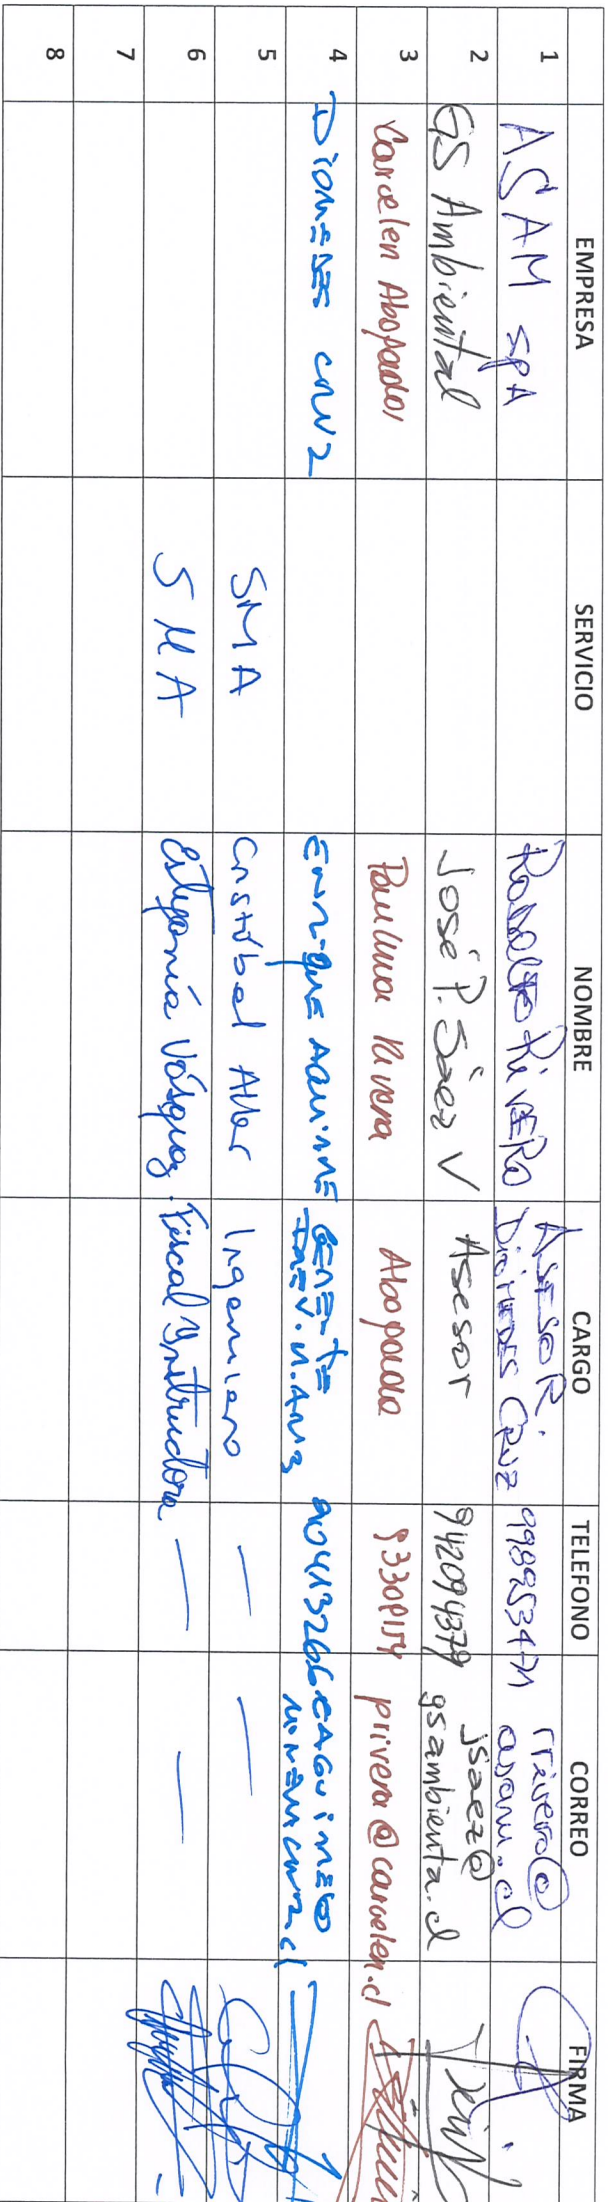 EMPRESA SERVICIO NOMBRE CARGO TELEFONO CORREO FIRMA
1 ASAM SpA Rodolfo Rivero Asesor Diomedes Cruz rrivero@asam.cl
2 GS Ambiental José P. Sáez V Asesor 942094379 jsaez@gsambienta.cl
3 Carcelen Abogados Paulina Rivera Abogada privera@carcelen.cl
4 Diomedes Cruz Enrique Gerente
5 SMA Cristóbal Alter Ingeniero —
6 SMA Estefanía Vásquez Fiscal Instructora — —
7
8